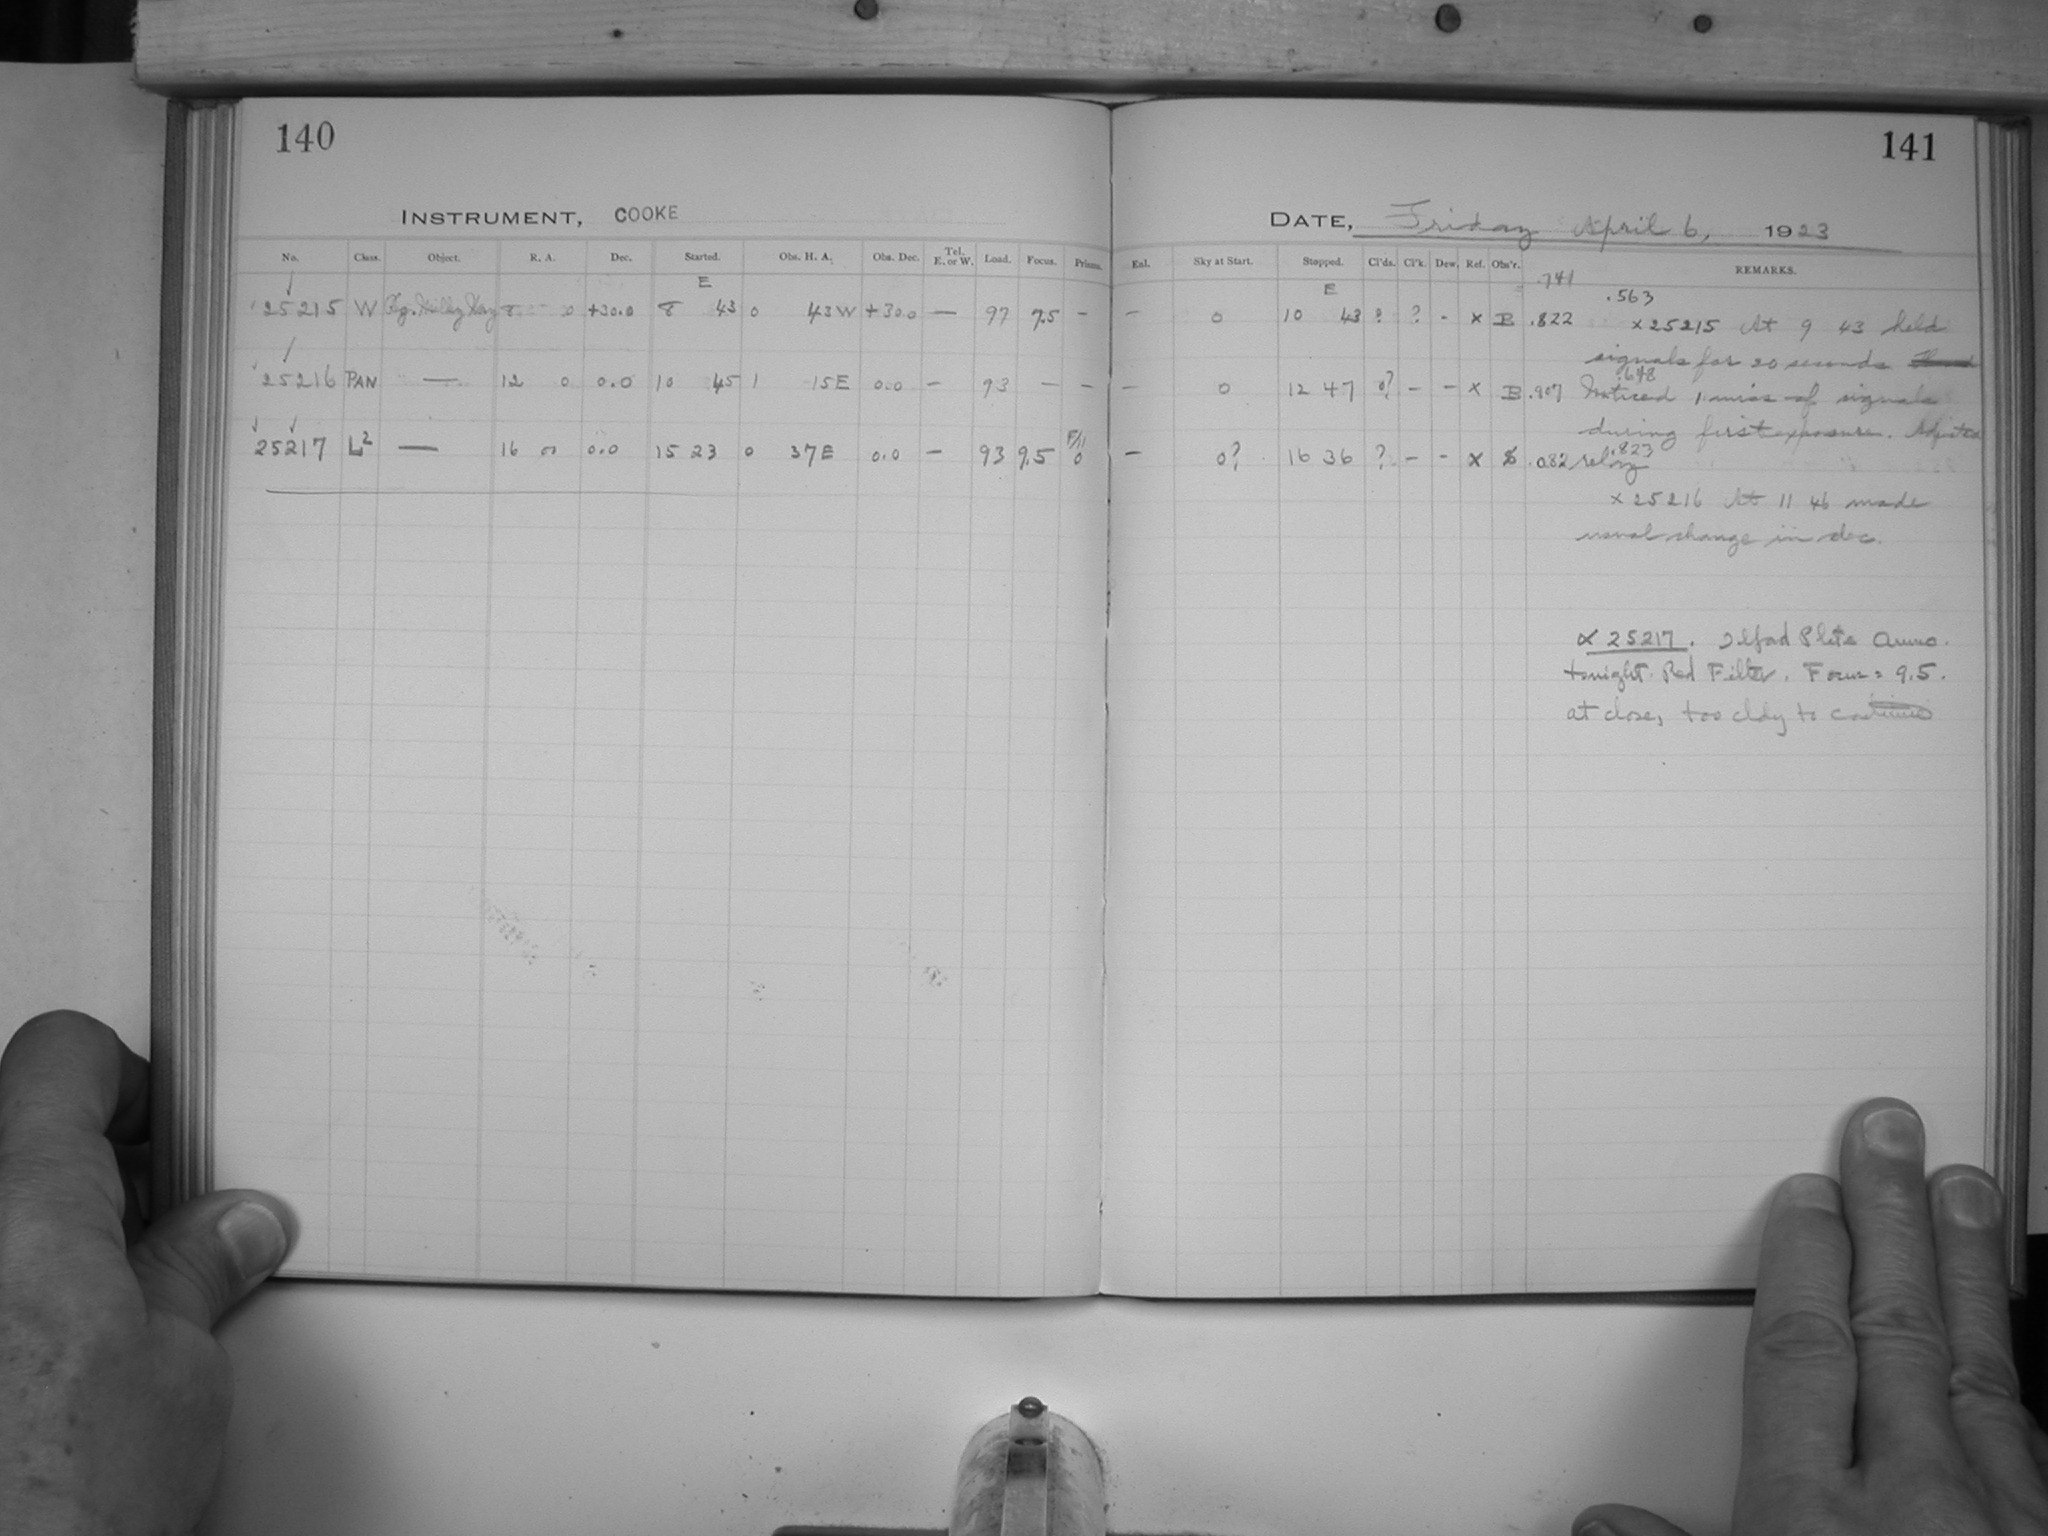 140
141
INSTRUMENT, COOKE
DATE, Friday April 6, 1923
No. Class. Object. R. A. Dec. Started. Obs. H. A. Obs. Dec. Tel. E. or W. Load. Focus. Prisms. Enl. Sky at Start. Stopped. Cl'ds. Cl'k. Dew. Ref. Obs'r. REMARKS.
E E .741
25215 W Milky Way 8 0 +30.0 8 43 0 43 W +30.0 — 97 7.5 - - 0 10 43 ? ? - x B .822 .563 x 25215 At 9 43 held
signals for 20 seconds
25216 PAN — 12 0 0.0 10 45 1 15 E 0.0 - 93 - - - 0 12 47 0? - - x B .907 .648 Noticed 1 miss of signals
during first exposure. Adjusted
25217 L² — 16 00 0.0 15 23 0 37 E 0.0 - 93 9.5 F/11 0 - 0? 16 36 ? - - x .082 .823 relay
x 25216 At 11 46 made
usual change in dec.
x 25217. Ilford Plate
tonight. Red Filter. Focus = 9.5.
at close, too cldy to continue